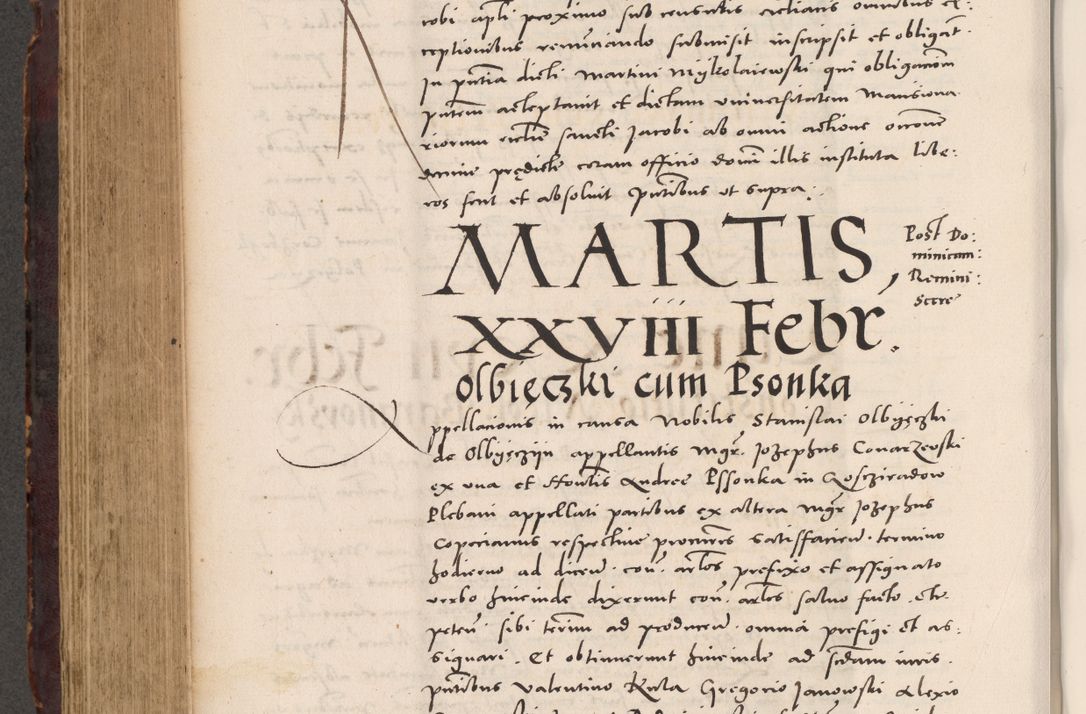 cobi apli proximo sub censuris eccliasticis omnibus ex:
ceptionibus renunciando submisit inscripsit et obligat.
In pntia dicti Martini Mykolaiewski qui obligacionem
pntem acceptavit et dictam universitatem Mansiona
riorum ecclie sancti Jacobi ab omni actione occone
premissa predicte coram officio domi illis instituta libe:
ros fecit et absolvit pntibus ut supra.
MARTIS,
Post Do:
minicam:
Remini:
scere
XXVIII Febr.
Olbięczki cum Psonka
Appellacionis in causa Nobilis Stanislai Olbyęczki
de Olbyęczyn appellantis Mgr. Jozephus Conarzewski
ex una et Honlis Andree Pssonka in Goscziradow
Plebani appellati partibus ex altera Mgr Jozephus
Copecianus respective procures satisfacien. termino
hodierno ad dicen. con. arlos prefixo et assignato
verbo hincinde dixerunt con. arlos salvo facto. etc
peten. sibi terim ad producen. omnia prefigi et as:
signari. Et obtinuerunt hincinde ad scdam iuris.
pntibus Valentino Kula Gregorio Janowski Alexio